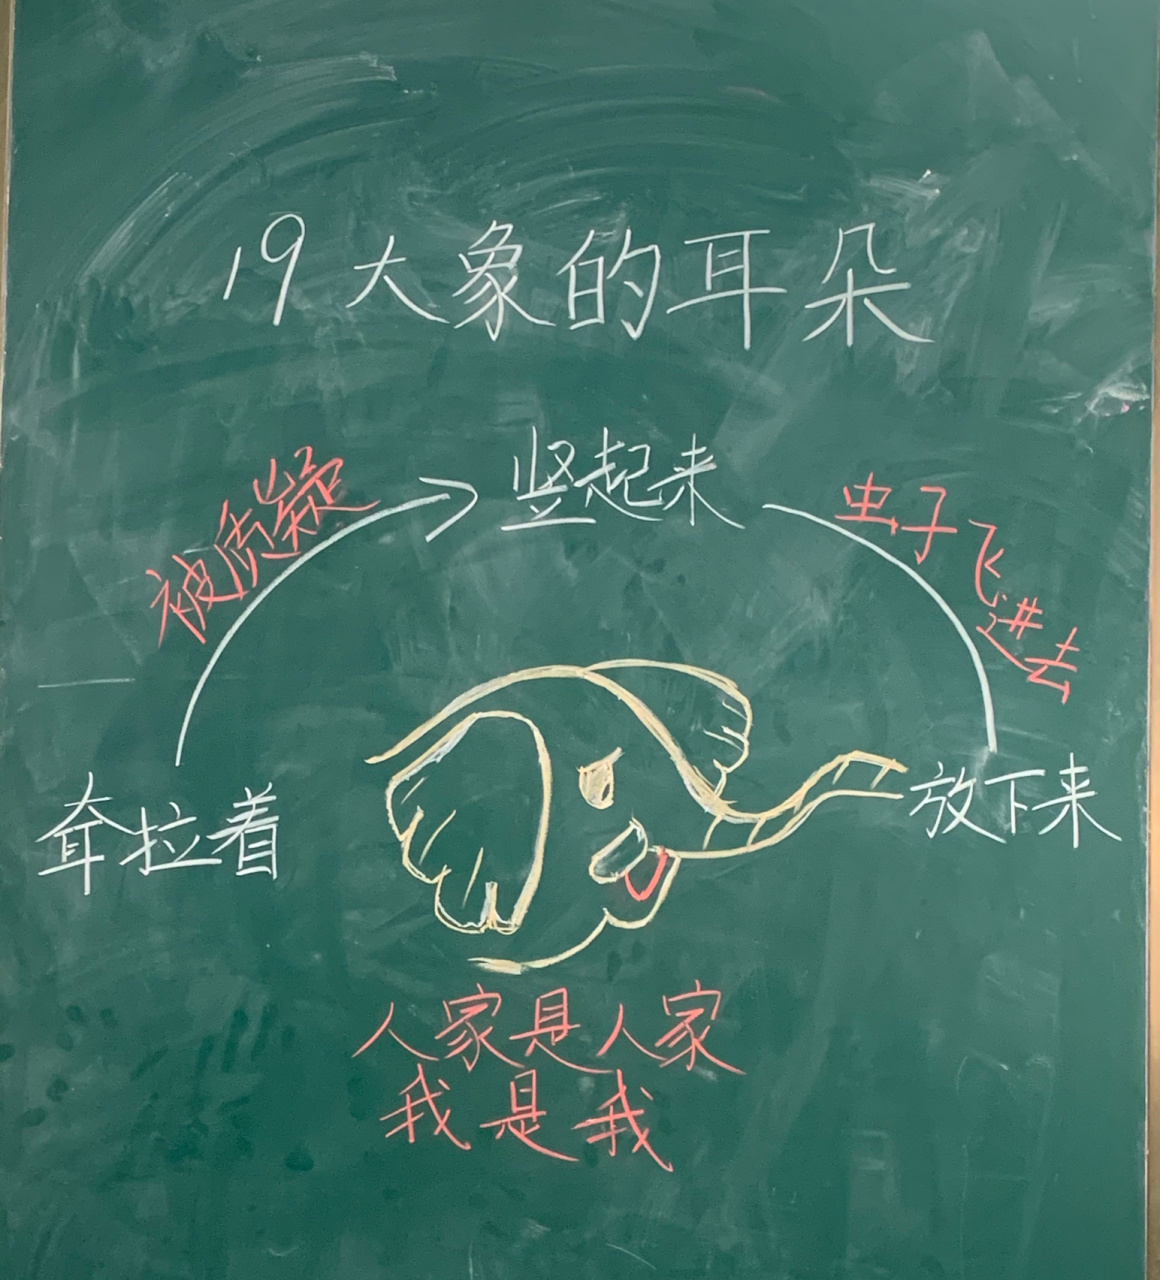 19 大象的耳朵
竖起来
被质疑
虫子飞进去
耷拉着
放下来
人家是人家
我是我